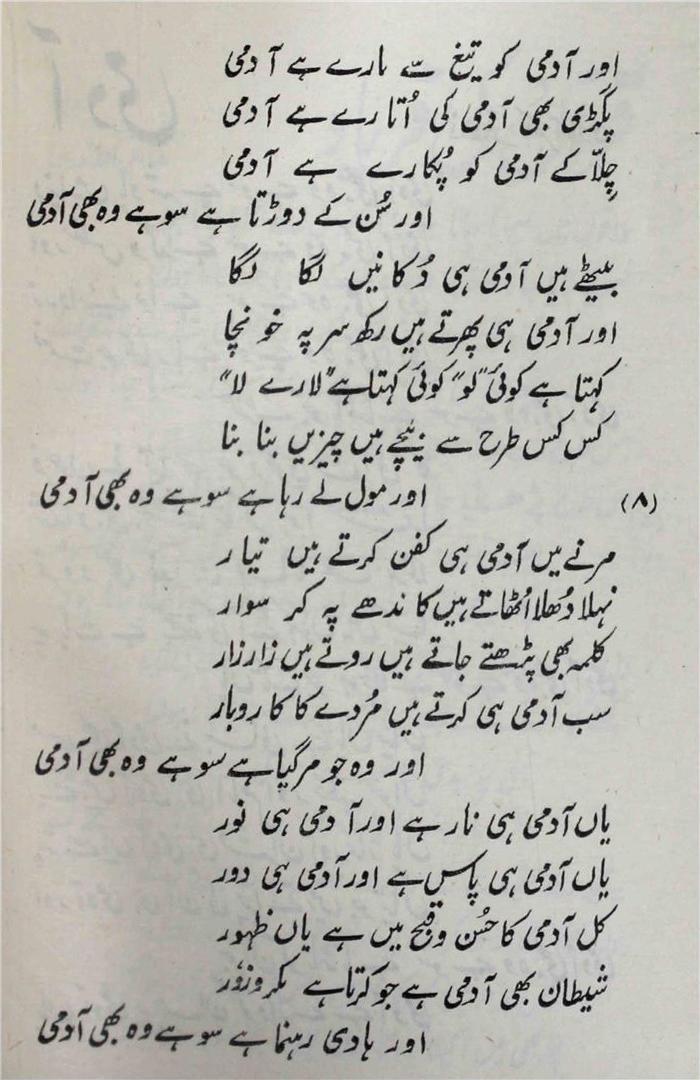 اور آدمی کو تیغ سے مارے ہے آدمی
پگڑی بھی آدمی کی اُتارے ہے آدمی
چلّا کے آدمی کو پُکارے ہے آدمی
اور سُن کے دوڑتا ہے سو ہے وہ بھی آدمی
بیٹھے ہیں آدمی ہی دُکانیں لگا لگا
اور آدمی ہی پھرتے ہیں رکھ سر پہ خونچا
کہتا ہے کوئی "لو" کوئی کہتا ہے "لارے لا"
کس کس طرح سے بیچے ہیں چیزیں بنا بنا
اور مول لے رہا ہے سو ہے وہ بھی آدمی
(۸)
مرنے میں آدمی ہی کفن کرتے ہیں تیار
نہلا دُھلا اُٹھاتے ہیں کاندھے پہ کر سوار
کلمہ بھی پڑھتے جاتے ہیں روتے ہیں زار زار
سب آدمی ہی کرتے ہیں مُردے کا کاروبار
اور وہ جو مر گیا ہے سو ہے وہ بھی آدمی
یاں آدمی ہی نار ہے اور آدمی ہی نور
یاں آدمی ہی پاس ہے اور آدمی ہی دور
کل آدمی کا حُسن و قبح میں ہے یاں ظہور
شیطان بھی آدمی ہے جو کرتا ہے مکر و زور
اور ہادی رہنما ہے سو ہے وہ بھی آدمی